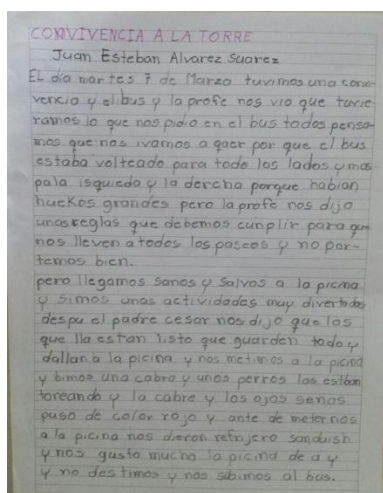 CONVIVENCIA A LA TORRE
Juan Esteban Alvarez Suarez
EL día martes 7 de Marzo tuvimos una conv-
vencia y el bus y la profe nos vio que tuvie-
ramos lo que nos pidio en el bus todos pensa-
mos que nos ivamos a qaer por que el bus
estaba volteado para todo los lados y mas
pala isquieda y la dercha porque habian
huekos grandes pero la profe nos dijo
unas reglas que debemos cunplir para que
nos lleven a todos los paseos y no por-
temos bien.
pero llegamos sanos y salvos a la picina
y Simos unas actividades muy divertidas
despu el padre cesar nos dijo que los
que lla estan listo que guarden todo y
dallan a la picina y nos metimos a la picina
y bimos una cabra y unos perros las estban
toreando y la cabre y los ojos senos
puso de color rojo y ante de meter nos
a la picina nos dieron refrijero sanduish
y nos gusto mucho la picina de a y
y no des timos y nos subimos al bus.